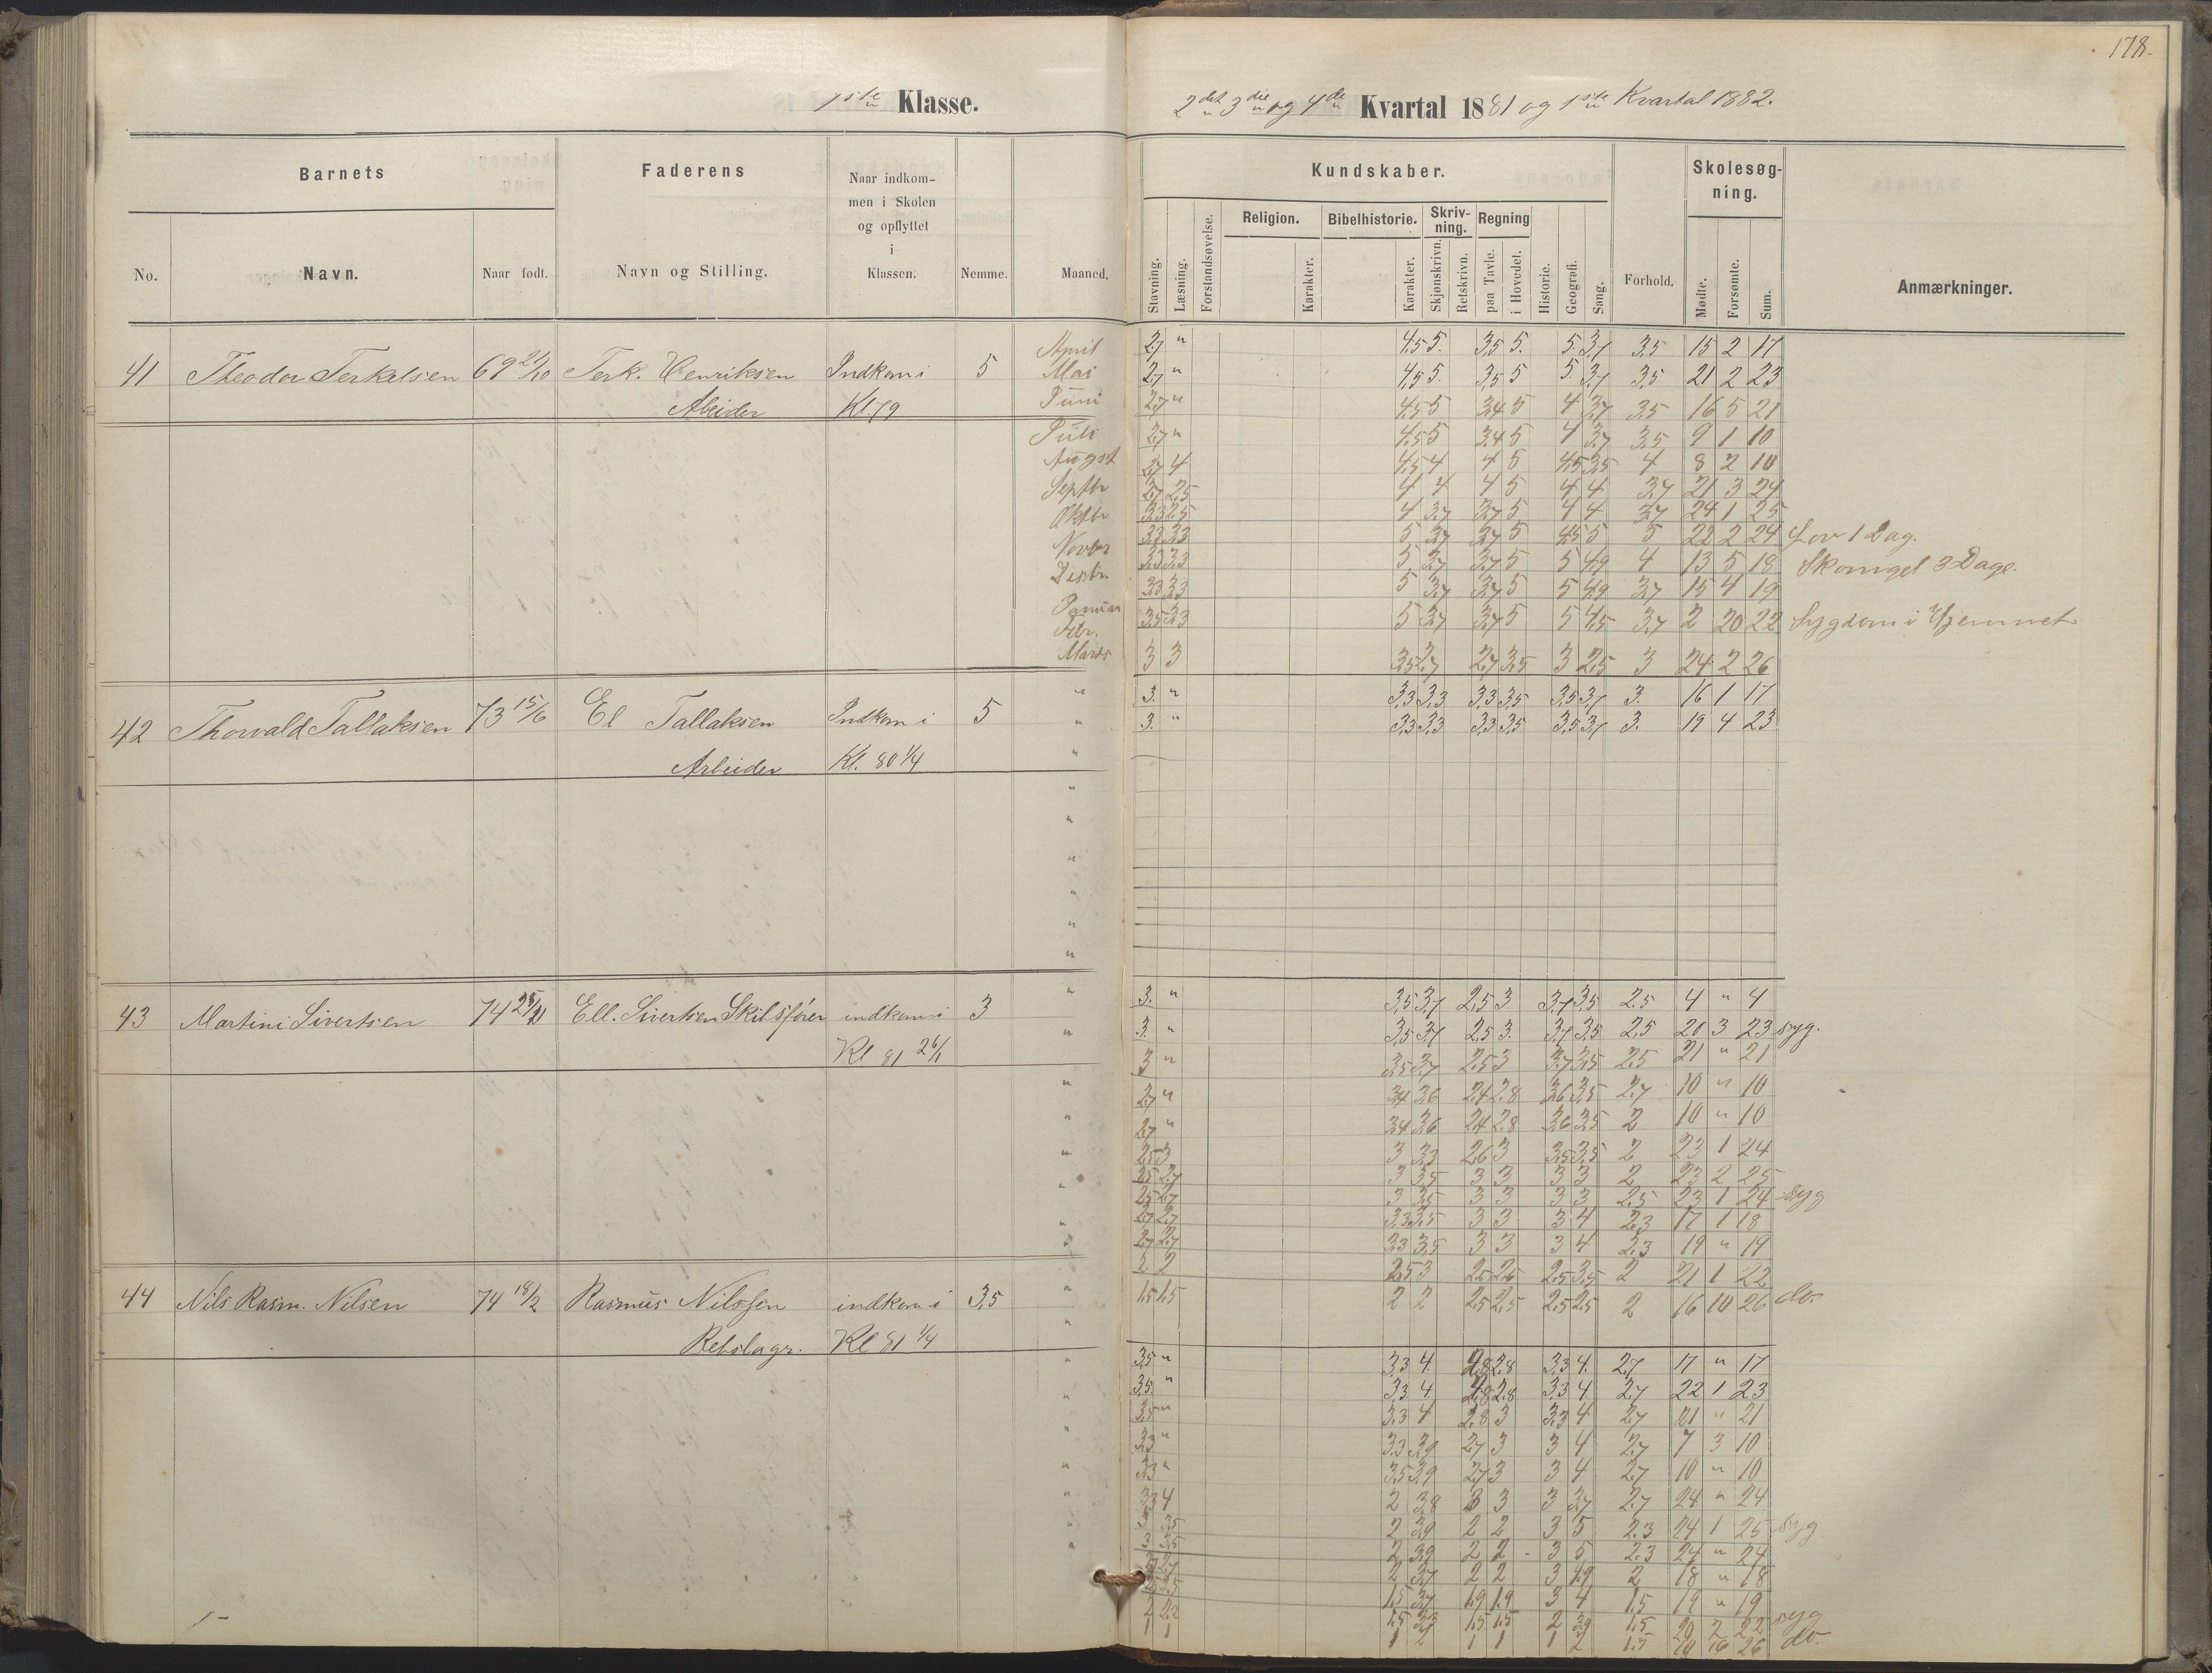 178.
1ste Klasse.
2det 3die og 4de Kvartal 1881 og 1ste Kvartal 1882.
Barnets
Faderens
Naar indkom-
men i Skolen
og opflyttet
i
Klassen.
No.
Navn.
Naar født.
Navn og Stilling.
Nemme.
Maaned.
Kundskaber.
Skolesøg-
ning.
Religion.
Bibelhistorie.
Skriv-
ning.
Regning
Stavning.
Læsning.
Forstandsøvelse.
Karakter.
Karakter.
Skjønskrivn.
Retskrivn.
paa Tavle.
i Hovedet.
Historie.
Geografi.
Sang.
Forhold.
Mødte.
Forsømte.
Sum.
Anmærkninger.
41 Theodor Terkelsen 69 21/10 Terk. Henriksen Indkom i 5
Abeider Kl. 79
April 2,7 " 4,5 5. 3,5 5. 5. 3,7 3,5 15 2 17
Mai 2,7 " 4,5 5. 3,5 5 5. 3,7 3,5 21 2 23
Juni 2,7 " 4,5 5 3,4 5 4 3,7 3,5 16 5 21
Juli 2,7 " 4,5 5 3,4 5 4 3,7 3,5 9 1 10
Augst 2,7 4 4,5 4 4 5 4,5 3,5 4 8 2 10
Septbr 2,7 2,5 4 4 4 5 4 4 3,7 21 3 24
Oktbr 3,3 2,5 4 3,7 3,7 5 4 4 3,7 24 1 25
Novbr 3,3 3,3 5 3,7 3,7 5 4,5 5 5 22 2 24 Lov 1 Dag.
Desbr. 3,3 3,3 5 3,7 3,7 5 5 4,9 4 13 5 18 Skomgel 3 Dage.
Januar 3,3 3,3 5 3,7 3,7 5 5 4,9 3,7 15 4 19
Febr. 3,5 3,3 5 3,7 3,7 5 5 4,5 3,7 2 20 22 Sygdom i Hjemmet
Marts 3 3 3,5 2,7 2,7 3,5 3 2,5 3 24 2 26
42 Thorvald Tallaksen 73 15/6 El Tallaksen Indkom i 5
Arbeider Kl. 80 1/4
3. " 3,3 3,3 3,3 3,5 3,5 3,7 3. 16 1 17
3. " 3,3 3,3 3,3 3,5 3,5 3,7 3. 19 4 23
43 Martini Sivertsen 74 Ell. Sivertsen Skibsfører indkom i 3
Kl 81 26/1
3. " 3,5 3,7 2,5 3 3,7 3,5 2.5 4 " 4
3. " 3,5 3,7 2,5 3. 3,7 3,5 2,5 20 3 23 syg.
3 " 3,5 3,7 2,5 3 3,7 3,5 2,5 21 " 21
2,7 " 3,4 3,6 2,4 2,8 3,6 3,5 2,7 10 " 10
2,7 " 3,4 3,6 2,4 2,8 3,6 3,5 2 10 " 10
2,5 3 3 3,3 2,6 3 3,5 3,5 2 23 1 24
2,5 2,7 3 3,5 3 3 3 3 2 23 2 25
2,5 2,7 3 3,5 3 3 3 3 2,5 23 1 24 syg
2,7 2,7 3,3 3,5 3 3 3 4 2,3 17 1 18
2,7 2,7 3,3 3,5 3 3 3 4 2,3 19 " 19
2 2 2,5 3 2,5 2,5 2,5 3,5 2 21 1 22
1,5 1,5 2 2 2,5 2,5 2,5 2,5 2 16 10 26 do.
44 Nils Rasm. Nilsen 74 18/2 Rasmus Nilssen indkom i 3,5
Rebslagr. Kl 81 1/4
3,5 " 3,3 4. 2,8 2,8 3,3 4. 2,7 17 " 17
3,5. " 3,3 4. 2,8 2,8 3,3 4. 2,7 22 1 23
3,5 " 3,3 4 2,8 3 3,3 4 2,7 21 " 21
3,3 " 3,3 3,9 2,7 3 3 4 2,7 7 3 10
3,3 " 3,5 3,9 2,7 3 3 4 2,7 10 " 10
3,3 4 2 3,8 3 3 3 3,7 2,7 24 " 24
3 3,5 2 3,9 2 2 3 5 2.3 24 1 25 syg
3 3,5 2 3,9 2 2 3 5 2.3 24 " 24
2,7 2,7 2 3,7 2 2 3 4,9 2 18 " 18
1,5 3,7 1,9 1,9 3 4 1,5 19 " 19
2 2,2 1,5 3,3 1,5 1,5 2 3,9 1,5 20 2 22 syg
1 1 1 2 1 1 1 2 1,5 10 16 26 do.